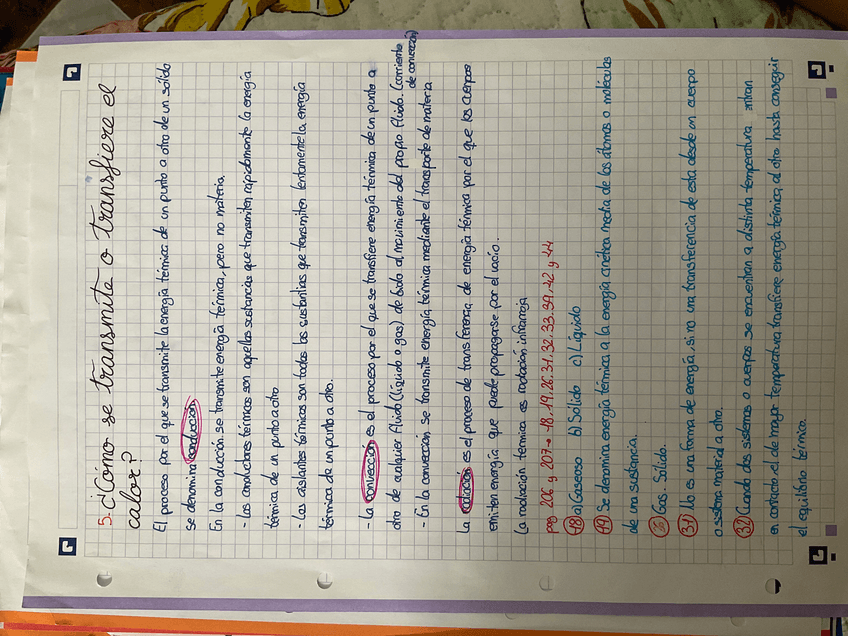 5. ¿Cómo se transmite o transfiere el
calor?
El proceso por el que se transmite la energía térmica de un punto a otro de un sólido
se denomina conducción.
En la conducción se transmite energía térmica, pero no materia.
- Los conductores térmicos son aquellas sustancias que transmiten rápidamente la energía
térmica de un punto a otro
- Los aislantes térmicos son todas las sustantias que transmiten lentamente la energía
térmica de un punto a otro.
- La convección es el proceso por el que se transfiere energía térmica de un punto a
otro de cualquier fluido (líquido o gas) debido al movimiento del propio fluido. (corriente
de convección)
- En la convección, se transmite energía térmica mediante el transporte de materia
La radiación es el proceso de transferencia de energía térmica por el que los cuerpos
emiten energía que puede propagarse por el vacío.
La radiación térmica es radiación infrarroja
pag 206 y 207 → 18, 19, 26, 31, 32, 33, 39, 42 y 44
18 a) Gaseoso b) Sólido c) Líquido
19 Se denomina energía térmica a la energía cinética media de los átomos o moléculas
de una sustancia.
26 Gas. Sólido.
31 No es una forma de energía, si no una transferencia de esta desde un cuerpo
o sistema material a otro.
32 Cuando dos sistemas o cuerpos se encuentran a distinta temperatura entran
en contacto el de mayor temperatura transfiere energía térmica al otro hasta conseguir
el equilibrio térmico.